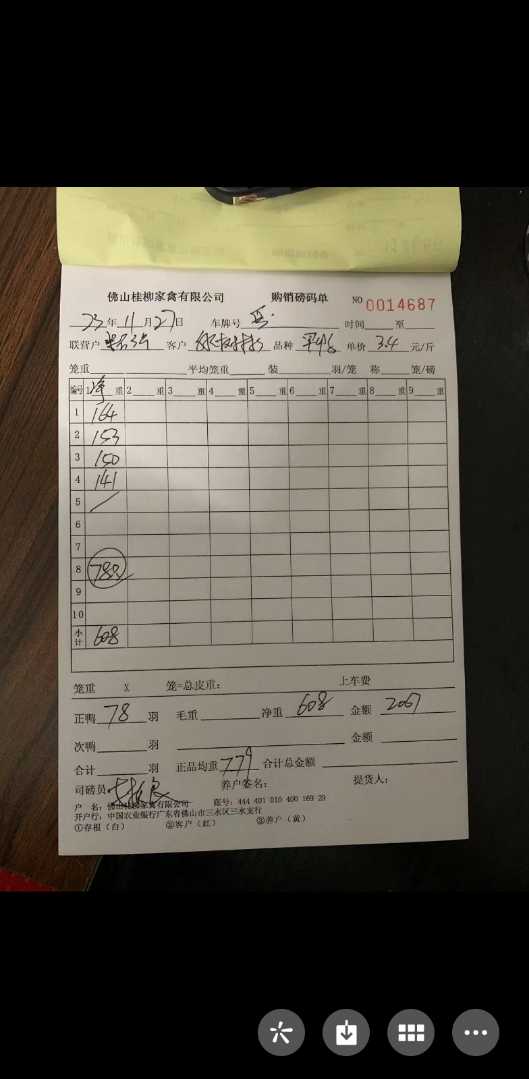 佛山桂柳家禽有限公司 购销磅码单 NO 0014687
23年11月27日 车牌号 时间 至
联营户 客户 品种 单价 3.4 元/斤
笼重 平均笼重 装 羽/笼 称 笼/磅
编号 1 净重 2 重 3 重 4 重 5 重 6 重 7 重 8 重 9 重
1 164
2 153
3 150
4 141
5
6
7
8 788
9
10
小计 608
笼重 X 笼=总皮重: 上车费
正鸭 78 羽 毛重 净重 608 金额 2067
次鸭 羽 金额
合计 羽 正品均重 779 合计总金额
司磅员 养户签名: 提货人:
户 名: 佛山桂柳家禽有限公司 账号: 444 401 010 400 169 29
开户行: 中国农业银行广东省佛山市三水区三水支行
①存根(白) ②客户(红) ③养户(黄)